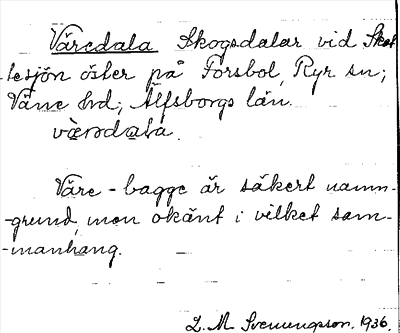 Väredala Skogsdalar vid Skot-
tesjön öster på Forsbol, Ryr sn;
Väne hd; Älfsborgs län.
värədala.
Väre-bagge är säkert namn-
-grund, men okänt i vilket sam-
-manhang.
L. M. Svenungsson. 1936.